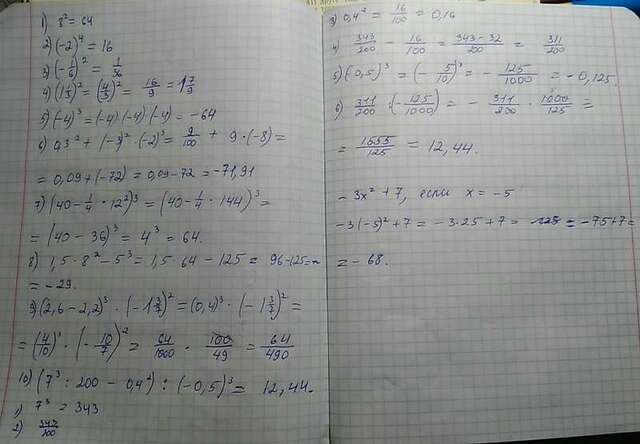 1) 8² = 64
2) (-2)⁴ = 16
3) (-1/6)² = 1/36
4) (1 1/3)² = (4/3)² = 16/9 = 1 7/9
5) (-4)³ = (-4)·(-4)·(-4) = -64
6) 0,3² + (-3)²·(-2)³ = 9/100 + 9·(-8) =
= 0,09 + (-72) = 0,09 - 72 = -71,91
7) (40 - 1/4 · 12²)³ = (40 - 1/4 · 144)³ =
= (40 - 36)³ = 4³ = 64.
8) 1,5 · 8² - 5³ = 1,5 · 64 - 125 = 96 - 125 =
= -29.
9) (2,6 - 2,2)³ · (-1 3/7)² = (0,4)³ · (-1 3/7)² =
= (4/10)³ · (-10/7)² = 64/1000 · 100/49 = 64/490
10) (7³ : 200 - 0,4²) : (-0,5)³ = 12,44.
1) 7³ = 343
2) 343/200
3) 0,4² = 16/100 = 0,16
4) 343/200 - 16/100 = 343-32/200 = 311/200
5) (-0,5)³ = (-5/10)³ = -125/1000 = -0,125.
6) 311/200 : (-125/1000) = - 311/200 · 1000/125 =
= 1555/125 = 12,44.
-3x² + 7, если x = -5
-3·(-5)²+7 = -3·25+7 = = -75+7 =
= -68.